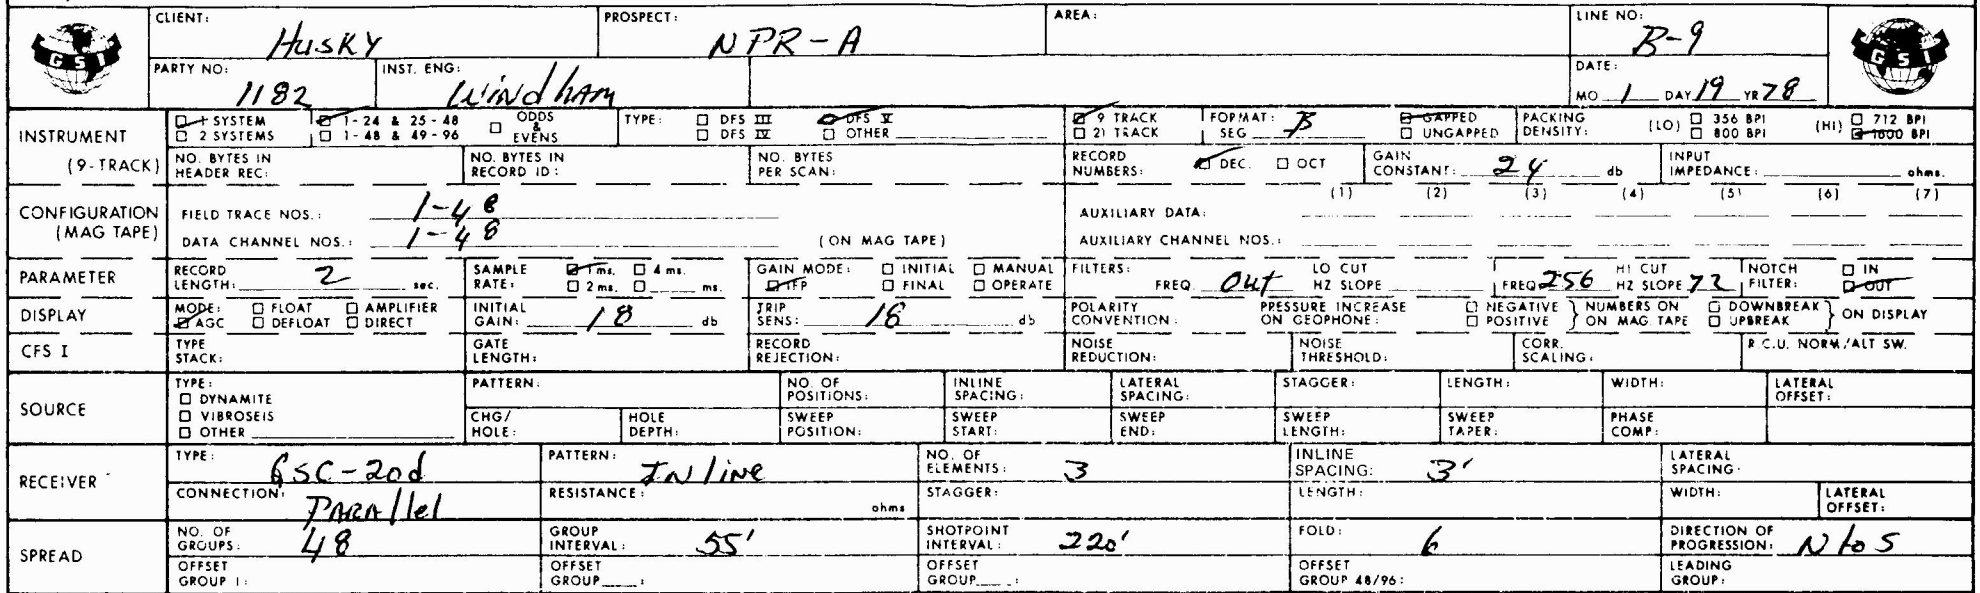 CLIENT: Husky PROSPECT: NPR-A AREA: LINE NO: B-9
GSI GSI
PARTY NO: 1182 INST. ENG: Windham DATE: MO 1 DAY 19 YR 78
INSTRUMENT (9-TRACK)
☑ 1 SYSTEM ☑ 1-24 & 25-48 ☐ ODDS & EVENS TYPE: ☐ DFS III ☑ DFS V ☑ 9 TRACK FORMAT: SEG B ☑ GAPPED PACKING DENSITY: (LO) ☐ 356 BPI (HI) ☐ 712 BPI
☐ 2 SYSTEMS ☐ 1-48 & 49-96 ☐ DFS IV ☐ OTHER ☐ 21 TRACK ☐ UNGAPPED ☐ 800 BPI ☑ 1600 BPI
NO. BYTES IN HEADER REC: NO. BYTES IN RECORD ID: NO. BYTES PER SCAN: RECORD NUMBERS: ☑ DEC. ☐ OCT GAIN CONSTANT: 24 db INPUT IMPEDANCE: ohms.
CONFIGURATION (MAG TAPE)
(1) (2) (3) (4) (5) (6) (7)
FIELD TRACE NOS.: 1-48 AUXILIARY DATA:
DATA CHANNEL NOS.: 1-48 (ON MAG TAPE) AUXILIARY CHANNEL NOS.:
PARAMETER RECORD LENGTH: 2 sec. SAMPLE RATE: ☑ 1 ms. ☐ 4 ms. ☐ 2 ms. ☐ ms. GAIN MODE: ☐ INITIAL ☐ MANUAL ☑ IFP ☐ FINAL ☐ OPERATE FILTERS: LO CUT FREQ Out HZ SLOPE HI CUT FREQ 256 HZ SLOPE 72 NOTCH FILTER: ☐ IN ☑ OUT
DISPLAY MODE: ☐ FLOAT ☐ AMPLIFIER ☑ AGC ☐ DEFLOAT ☐ DIRECT INITIAL GAIN: 18 db TRIP SENS: 18 db POLARITY CONVENTION: PRESSURE INCREASE ON GEOPHONE: ☐ NEGATIVE ☐ POSITIVE } NUMBERS ON MAG TAPE ☐ DOWNBREAK ☐ UPBREAK } ON DISPLAY
CFS I TYPE STACK: GATE LENGTH: RECORD REJECTION: NOISE REDUCTION: NOISE THRESHOLD: CORR. SCALING: R.C.U. NORM/ALT SW.
SOURCE
TYPE: ☐ DYNAMITE ☐ VIBROSEIS ☐ OTHER
PATTERN: NO. OF POSITIONS: INLINE SPACING: LATERAL SPACING: STAGGER: LENGTH: WIDTH: LATERAL OFFSET:
CHG/HOLE: HOLE DEPTH: SWEEP POSITION: SWEEP START: SWEEP END: SWEEP LENGTH: SWEEP TAPER: PHASE COMP:
RECEIVER
TYPE: GSC-20d PATTERN: Inline NO. OF ELEMENTS: 3 INLINE SPACING: 3' LATERAL SPACING:
CONNECTION: Parallel RESISTANCE: ohms STAGGER: LENGTH: WIDTH: LATERAL OFFSET:
SPREAD
NO. OF GROUPS: 48 GROUP INTERVAL: 55' SHOTPOINT INTERVAL: 220' FOLD: 6 DIRECTION OF PROGRESSION: N to S
OFFSET GROUP 1: OFFSET GROUP ___: OFFSET GROUP ___: OFFSET GROUP 48/96: LEADING GROUP: